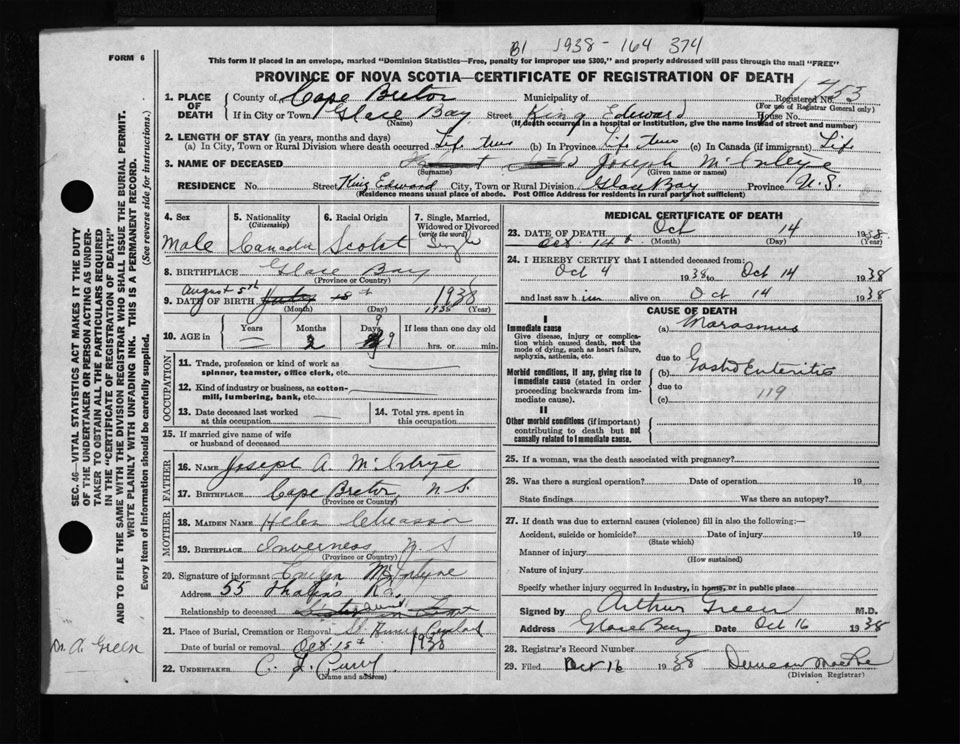 B1 1938-164 374
FORM 6
This form if placed in an envelope, marked "Dominion Statistics—Free, penalty for improper use $300," and properly addressed will pass through the mail "FREE"
PROVINCE OF NOVA SCOTIA—CERTIFICATE OF REGISTRATION OF DEATH
1. PLACE OF DEATH
County of Cape Breton Municipality of Registered No. 1453
(For use of Registrar General only)
If in City or Town Glace Bay Street King Edward House No.
(Name) (If death occurred in a hospital or institution, give the name instead of street and number)
2. LENGTH OF STAY (in years, months and days)
(a) In City, Town or Rural Division where death occurred Life time (b) In Province Life time (c) In Canada (if immigrant) Life
3. NAME OF DECEASED Joseph McIntyre
(Surname) (Given name or names)
RESIDENCE No. Street King Edward City, Town or Rural Division Glace Bay Province N.S.
(Residence means usual place of abode. Post Office Address for residents in rural parts not sufficient)
4. Sex Male
5. Nationality (Citizenship) Canada
6. Racial Origin Scotch
7. Single, Married, Widowed or Divorced (write the word) Single
8. BIRTHPLACE Glace Bay
(Province or Country)
August 5th
9. DATE OF BIRTH July 15th 1938
(Month) (Day) 1938 (Year)
10. AGE in Years — Months 2 Days 9 If less than one day old hrs. or min.
OCCUPATION
11. Trade, profession or kind of work as spinner, teamster, office clerk, etc.
12. Kind of industry or business, as cotton-mill, lumbering, bank, etc.
13. Date deceased last worked at this occupation
14. Total yrs. spent in this occupation
15. If married give name of wife or husband of deceased
FATHER
16. NAME Joseph A. McIntyre
17. BIRTHPLACE Cape Breton, N.S.
(Province or Country)
MOTHER
18. MAIDEN NAME Helen Chiasson
19. BIRTHPLACE Inverness, N S
(Province or Country)
20. Signature of informant McIntyre
Address 55 Rd.
Relationship to deceased Aunt
21. Place of Burial, Cremation or Removal St Annes
Date of burial or removal Oct. 15th 1938
22. UNDERTAKER C. L. Curry
(Name and address)
MEDICAL CERTIFICATE OF DEATH
23. DATE OF DEATH Oct 14 1938
Oct. 14th (Month) (Day) (Year)
24. I HEREBY CERTIFY that I attended deceased from:
Oct 4 1938 to Oct 14 1938
and last saw him alive on Oct 14 1938
CAUSE OF DEATH
I
Immediate cause
Give disease, injury or complication which caused death, not the mode of dying, such as heart failure, asphyxia, asthenia, etc.
(a) Marasmus
due to
Morbid conditions, if any, giving rise to immediate cause (stated in order proceeding backwards from immediate cause).
(b) Gastro Enteritis
due to
(c) 119
II
Other morbid conditions (if important) contributing to death but not causally related to immediate cause.
25. If a woman, was the death associated with pregnancy?
26. Was there a surgical operation? Date of operation 19
State findings Was there an autopsy?
27. If death was due to external causes (violence) fill in also the following:—
Accident, suicide or homicide? Date of injury 19
(State which)
Manner of injury
(How sustained)
Nature of injury
Specify whether injury occurred in industry, in home, or in public place
Signed by Arthur Green M.D.
Address Glace Bay Date Oct 16 1938
28. Registrar's Record Number
29. Filed Oct 16 1938 Duncan
(Division Registrar)
SEC. 46—VITAL STATISTICS ACT MAKES IT THE DUTY
OF THE UNDERTAKER OR PERSON ACTING AS UNDER-
TAKER TO OBTAIN ALL THE PARTICULARS REQUIRED
IN THE "CERTIFICATE OF REGISTRATION OF DEATH"
AND TO FILE THE SAME WITH THE DIVISION REGISTRAR WHO SHALL ISSUE THE BURIAL PERMIT.
WRITE PLAINLY WITH UNFADING INK. THIS IS A PERMANENT RECORD.
Every item of information should be carefully supplied. (See reverse side for instructions.)
Dr. A. Green